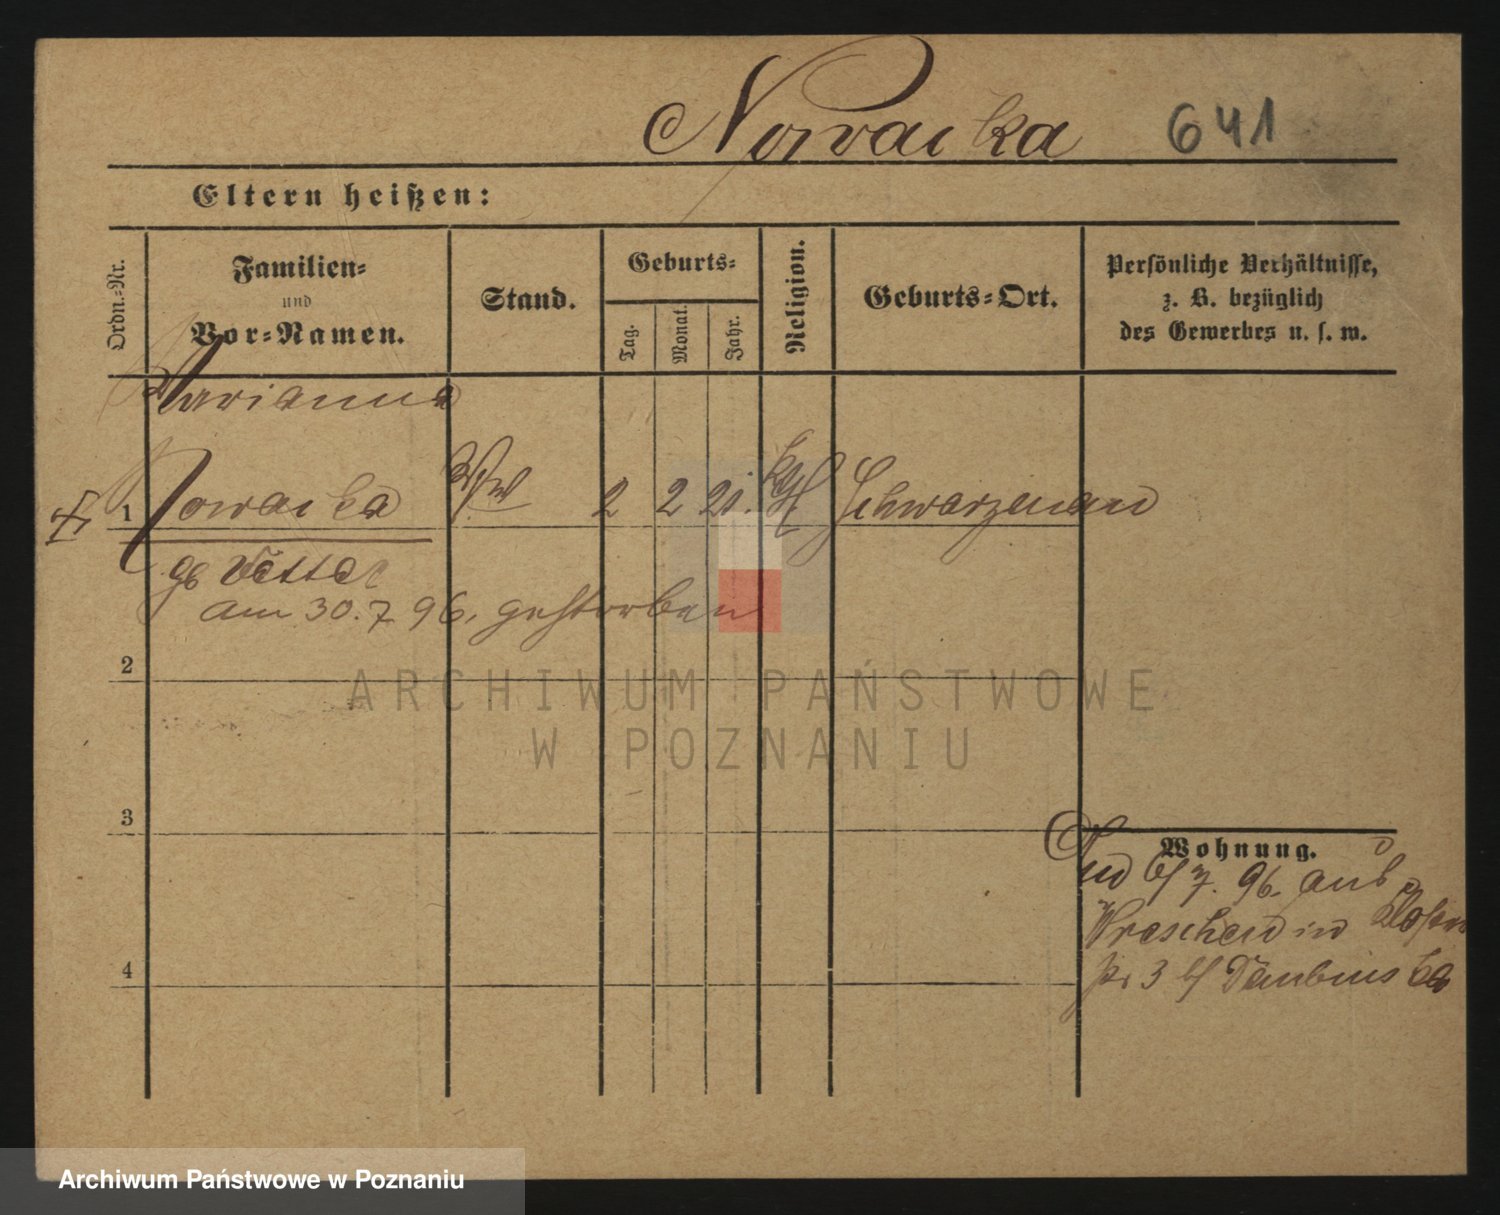 Nowacka 641
Eltern heißen:
Ordn.-Nr.
Familien-
und
Vor-Namen.
Stand.
Geburts-
Tag.
Monat.
Jahr.
Religion.
Geburts-Ort.
Persönliche Verhältnisse,
z. B. bezüglich
des Gewerbes u. s. w.
Marianna
1 Nowacka 2 2 21. kth Schwarzenau
gb Vetter
am 30.7 96. gestorben
2
ARCHIWUM PAŃSTWOWE
W POZNANIU
3
Wohnung.
7. 96. aus
Wreschen in
4
3 b/
Archiwum Państwowe w Poznaniu